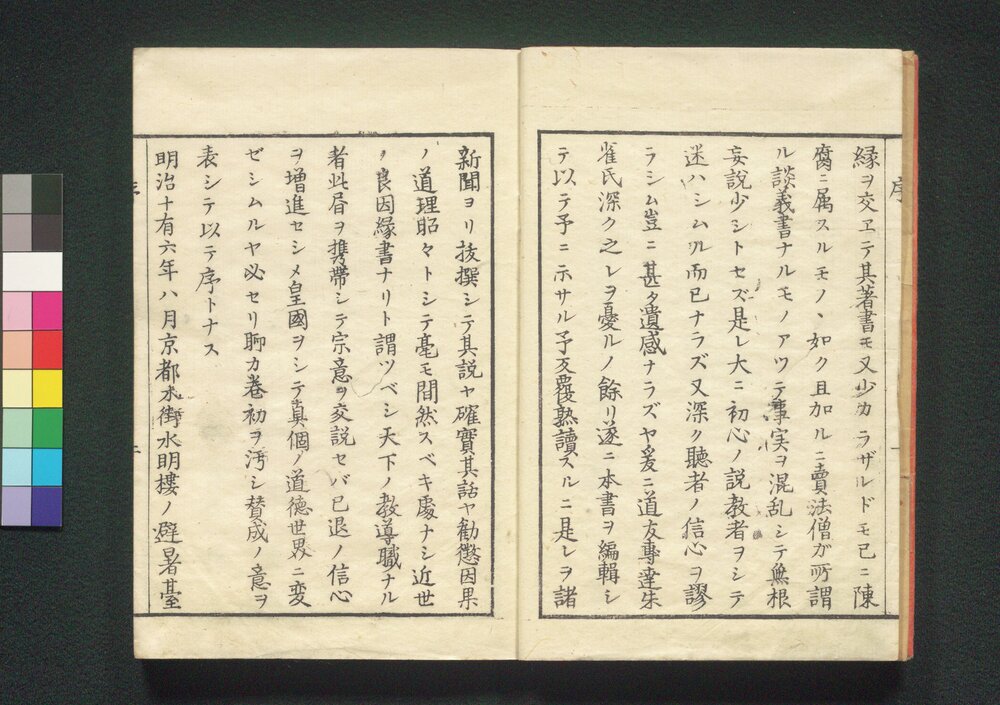 縁ヲ交ヱテ其著書モ又少カラザルドモ已ニ陳
腐ニ属スルモノヽ如ク且加ルニ賣法僧ガ所謂
ル談義書ナルモノアツテ事実ヲ混乱シテ無根
妄説少シトセズ是レ大ニ初心ノ説教者ヲシテ
迷ハシムル而已ナラズ又深ク聽者ノ信心ヲ謬
ラシム豈ニ甚タ遺感ナラズヤ爰ニ道友專達朱
雀氏深ク之レヲ憂ルノ餘リ遂ニ本書ヲ編輯シ
テ以テ予ニ示サル予反覆熟讀スルニ是レヲ諸
新聞ヨリ抜撰シテ其説ヤ確實其話ヤ勧懲因果
ノ道理昭々トシテ毫モ間然スベキ處ナシ近世
ヲ良因縁書ナリト謂ツベシ天下ノ教導職ナル
者此書ヲ携帶シテ宗意ヲ交説セバ已退ノ信心
ヲ増進セシメ皇國ヲシテ真個ノ道徳世界ニ変
ゼシムルヤ必セリ聊カ巻初ヲ汚シ賛成ノ意ヲ
表シテ以テ序トナス
明治十有六年八月京都木街水明樓ノ避暑臺
序